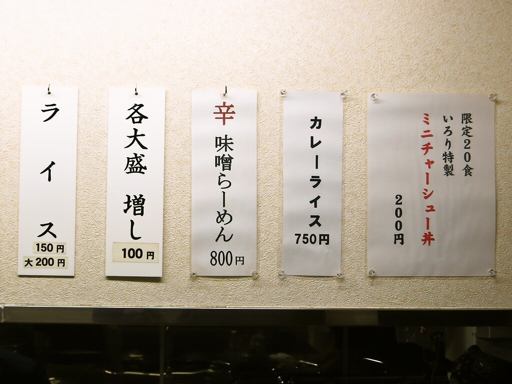 限定20食
いろり特製
ミニチャーシュー丼
200円
カレーライス
750円
辛味噌らーめん
800円
各大盛 増し
100円
ライス
150円
大200円